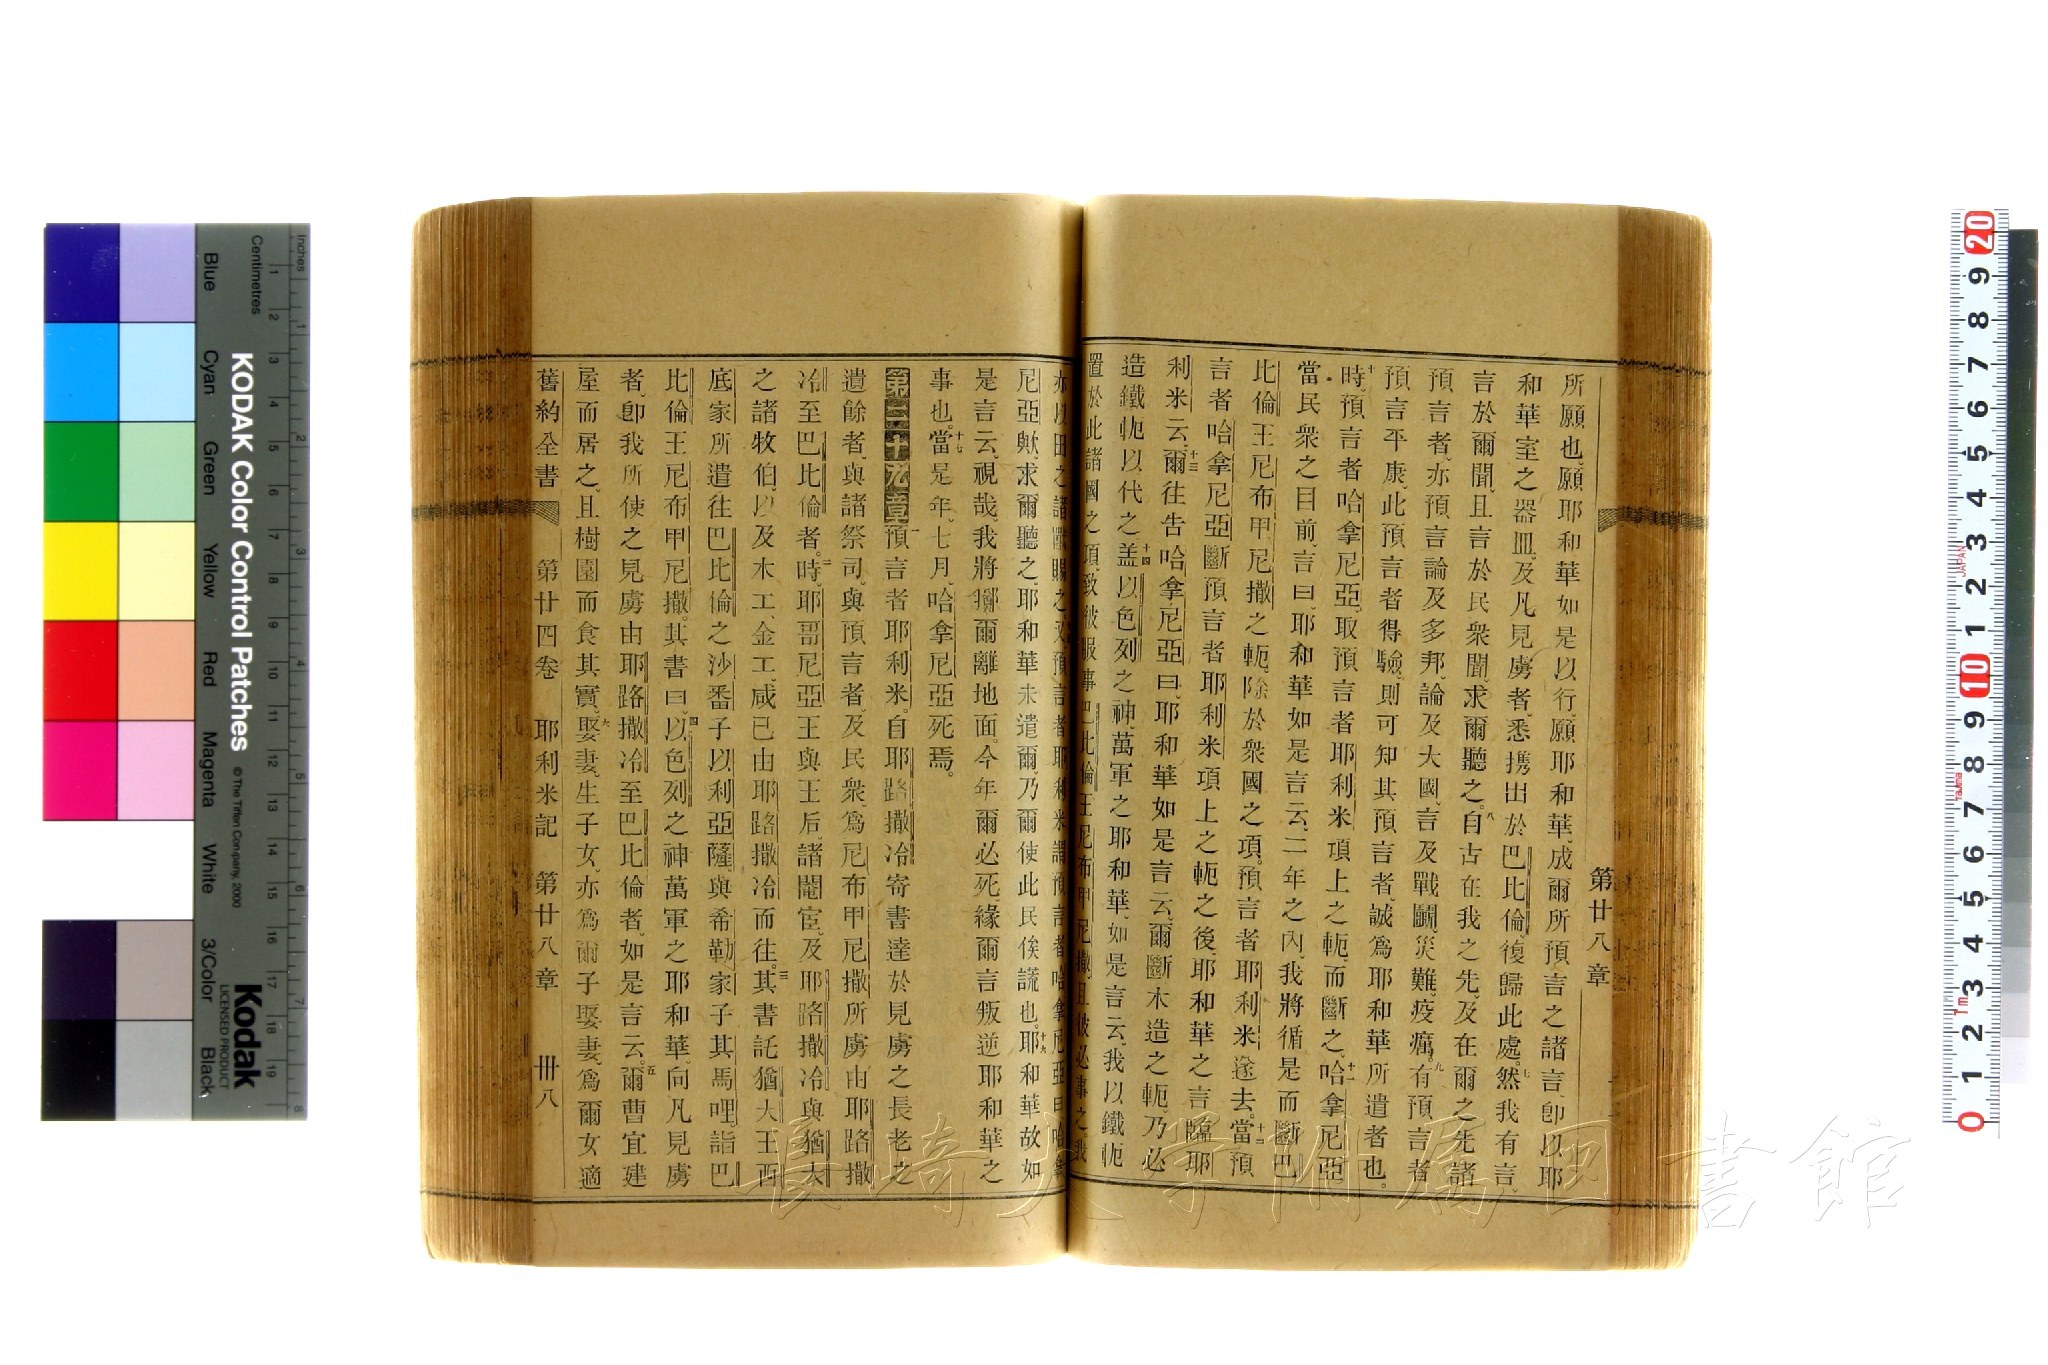 第廿八章
所願也、願耶和華如是以行、願耶和華、成爾所預言之諸言、卽以耶
和華室之器皿、及凡見虜者、悉攜出於巴比倫、復歸此處。七然我有言、
言於爾聞、且言於民衆聞、求爾聽之。八自古在我之先、及在爾之先諸
預言者、亦預言論及多邦、論及大國、言及戰鬭、災難、疫癘。九有預言者
預言平康、此預言者得驗、則可知其預言者、誠爲耶和華所遣者也。
十時、預言者哈拿尼亞、取預言者耶利米項上之軛、而斷之。十一哈拿尼亞
當民衆之目前、言曰、耶和華如是言云、二年之內、我將循是而斷巴
比倫王尼布甲尼撒之軛、除於衆國之項。預言者耶利米遂去。十二當預
言者哈拿尼亞斷預言者耶利米項上之軛之後、耶和華之言臨耶
利米云、十三爾往告哈拿尼亞曰、耶和華如是言云、爾斷木造之軛、乃必
造鐵軛以代之。十四盖以色列之神、萬軍之耶和華、如是言云、我以鐵軛
置於此諸國之項、致彼服事巴比倫王尼布甲尼撒、且彼必事之。我
亦以田之諸獸賜之。又預言者耶利米謂預言者哈拿尼亞曰、哈拿
尼亞歟、求爾聽之、耶和華未遣爾、乃爾使此民俟謊也。十六耶和華故如
是言云、視哉、我將擲爾離地面。今年爾必死、緣爾言叛逆耶和華之
事也。十七當是年、七月、哈拿尼亞死焉。
第二十九章一預言者耶利米、自耶路撒冷寄書達於見虜之長老之
遺餘者、與諸祭司、與預言者、及民衆、爲尼布甲尼撒所虜由耶路撒
冷至巴比倫者。二時、耶哥尼亞王與王后諸閹宦、及耶路撒冷與猶大
之諸牧伯、以及木工、金工、咸已由耶路撒冷而往。三其書託猶大王西
底家所遣往巴比倫之沙番子以利亞薩、與希勒家子其馬哩、詣巴
比倫王尼布甲尼撒。其書曰、四以色列之神萬軍之耶和華、向凡見虜
者、卽我所使之見虜由耶路撒冷至巴比倫者、如是言云。五爾曹宜建
屋而居之、且樹園而食其實、六娶妻、生子女、亦爲爾子娶妻、爲爾女適
舊約全書 第廿四卷 耶利米記 第廿八章 卅八
KODAK Color Control Patches
© The Tiffen Company, 2000
Kodak
LICENSED PRODUCT
Inches
Centimetres
Blue Cyan Green Yellow Red Magenta White 3/Color Black
長崎大学附属図書館